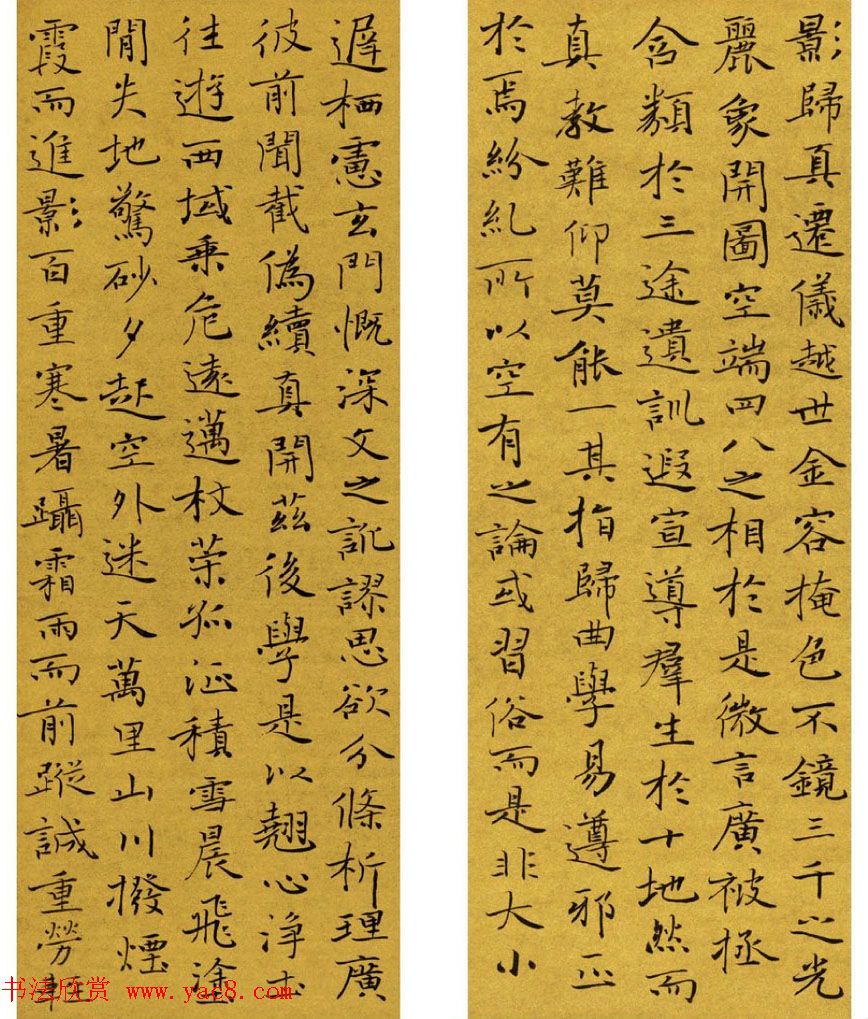 影歸真遷儀越世金容掩色不鏡三千之光
麗象開圖空端四八之相於是微言廣被拯
含類於三途遺訓遐宣導羣生於十地然而
真教難仰莫能一其指歸曲學易遵邪正
於焉紛糺所以空有之論或習俗而是非大小
遲栖慮玄門慨深文之訛謬思欲分條析理廣
彼前聞截偽續真開茲後學是以翹心淨土
往遊西域乘危遠邁杖策孤征積雪晨飛塗
閒失地驚砂夕起空外迷天萬里山川撥煙
霞而進影百重寒暑躡霜雨而前蹤誠重勞輕
书法欣赏 www.yac8.com